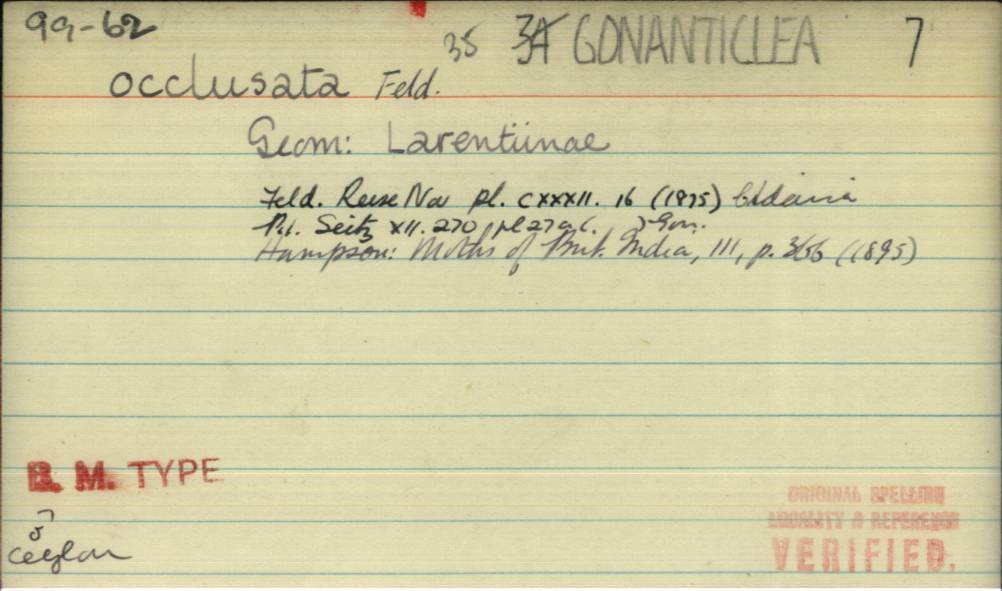 99-62
35 34 GONANTICLEA 7
occlusata Feld.
Geom: Larentiinae
Feld. Reise Nov pl. CXXXII. 16 (1875) Cidaria
Seitz XII. 270 pl 27a
Hampson: Moths of Brit. India, III, p. (1895)
B. M. TYPE
Ceylon
ORIGINAL SPELLING
LOCALITY & REFERENCE
VERIFIED.